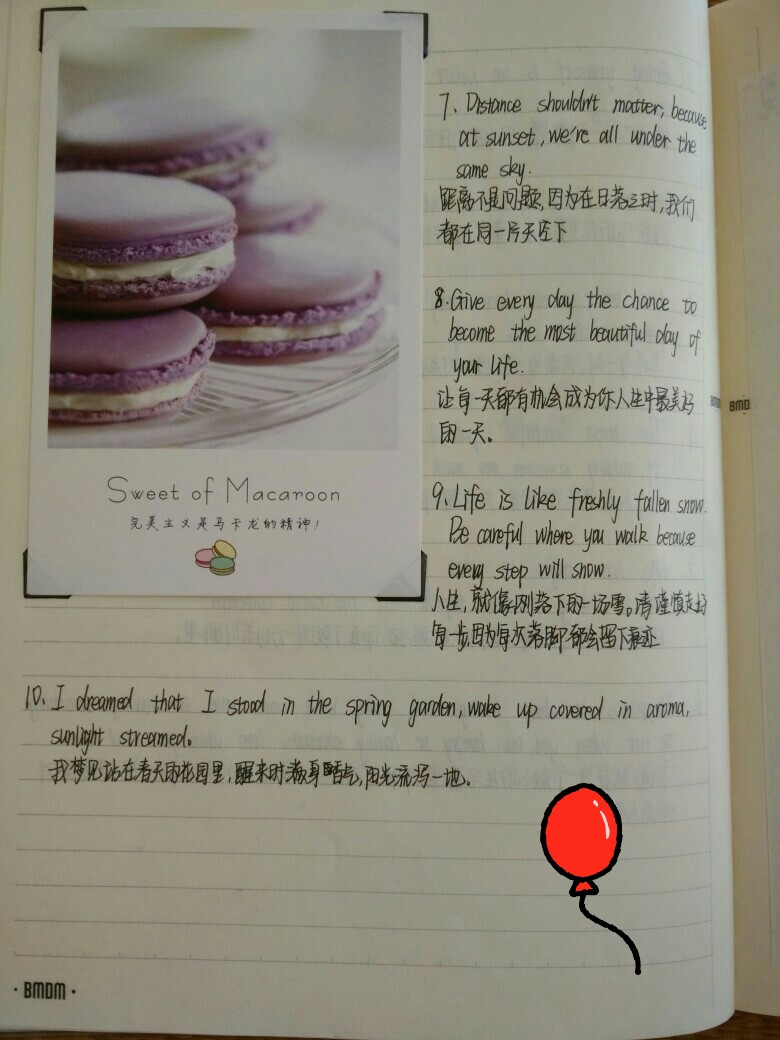 Sweet of Macaroon
完美主义是马卡龙的精神!
7、Distance shouldn't matter, because
at sunset, we're all under the
same sky.
距离不是问题,因为在日落之时,我们
都在同一片天空下
8.Give every day the chance to
become the most beautiful day of
your life.
让每一天都有机会成为你人生中最美好
的一天。
9.Life is like freshly fallen snow.
Be careful where you walk because
every step will show.
人生,就像刚落下的一场雪。请谨慎走好
每一步,因为每次落脚都会留下痕迹
10. I dreamed that I stood in the spring garden, wake up covered in aroma,
sunlight streamed.
我梦见站在春天的花园里,醒来时满身香气,阳光流泻一地。
· BMDM ·
BMD